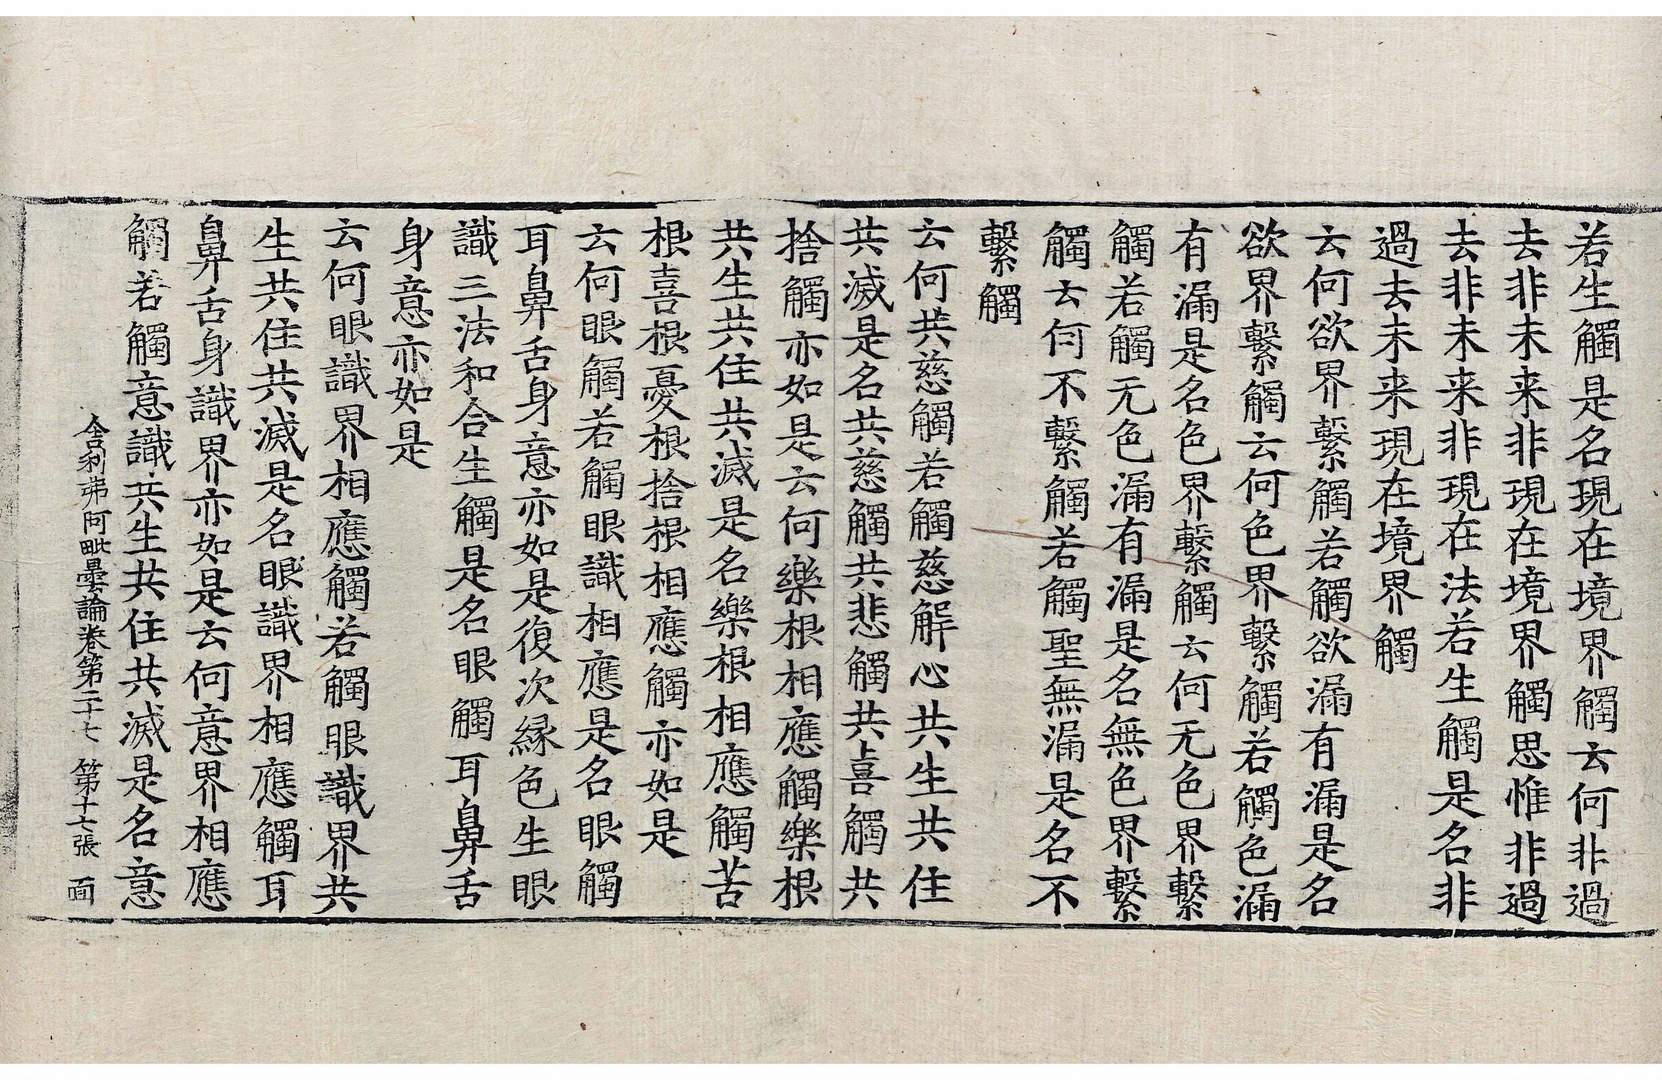 若生觸是名現在境界觸云何非過
去非未来非現在境界觸思惟非過
去非未来非現在法若生觸是名非
過去未来現在境界觸
云何欲界繫觸若觸欲漏有漏是名
欲界繫觸云何色界繫觸若觸色漏
有漏是名色界繫觸云何无色界繫
觸若觸无色漏有漏是名無色界繫
觸云何不繫觸若觸聖無漏是名不
繫觸
云何共慈觸若觸慈解心共生共住
共滅是名共慈觸共悲觸共喜觸共
捨觸亦如是云何樂根相應觸樂根
共生共住共滅是名樂根相應觸苦
根喜根憂根捨根相應觸亦如是
云何眼觸若觸眼識相應是名眼觸
耳鼻舌身意亦如是復次縁色生眼
識三法和合生觸是名眼觸耳鼻舌
身意亦如是
云何眼識界相應觸若觸眼識界共
生共住共滅是名眼識界相應觸耳
鼻舌身識界亦如是云何意界相應
觸若觸意識共生共住共滅是名意
舍利弗阿毗曇論卷第二十七 第十七張 面